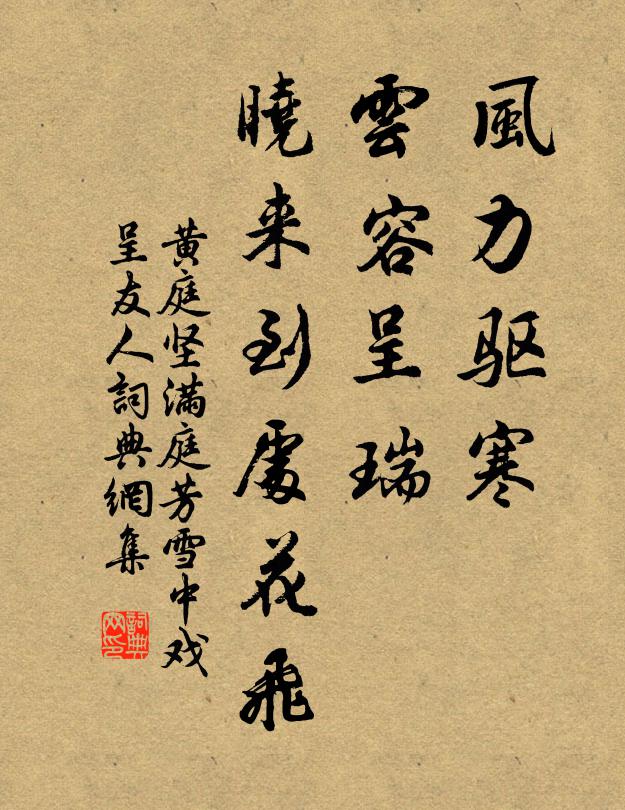 風力驱寒
雲容呈瑞
曉来到處花飛
黄庭坚满庭芳雪中戏
呈友人詞典網集
詞典网印